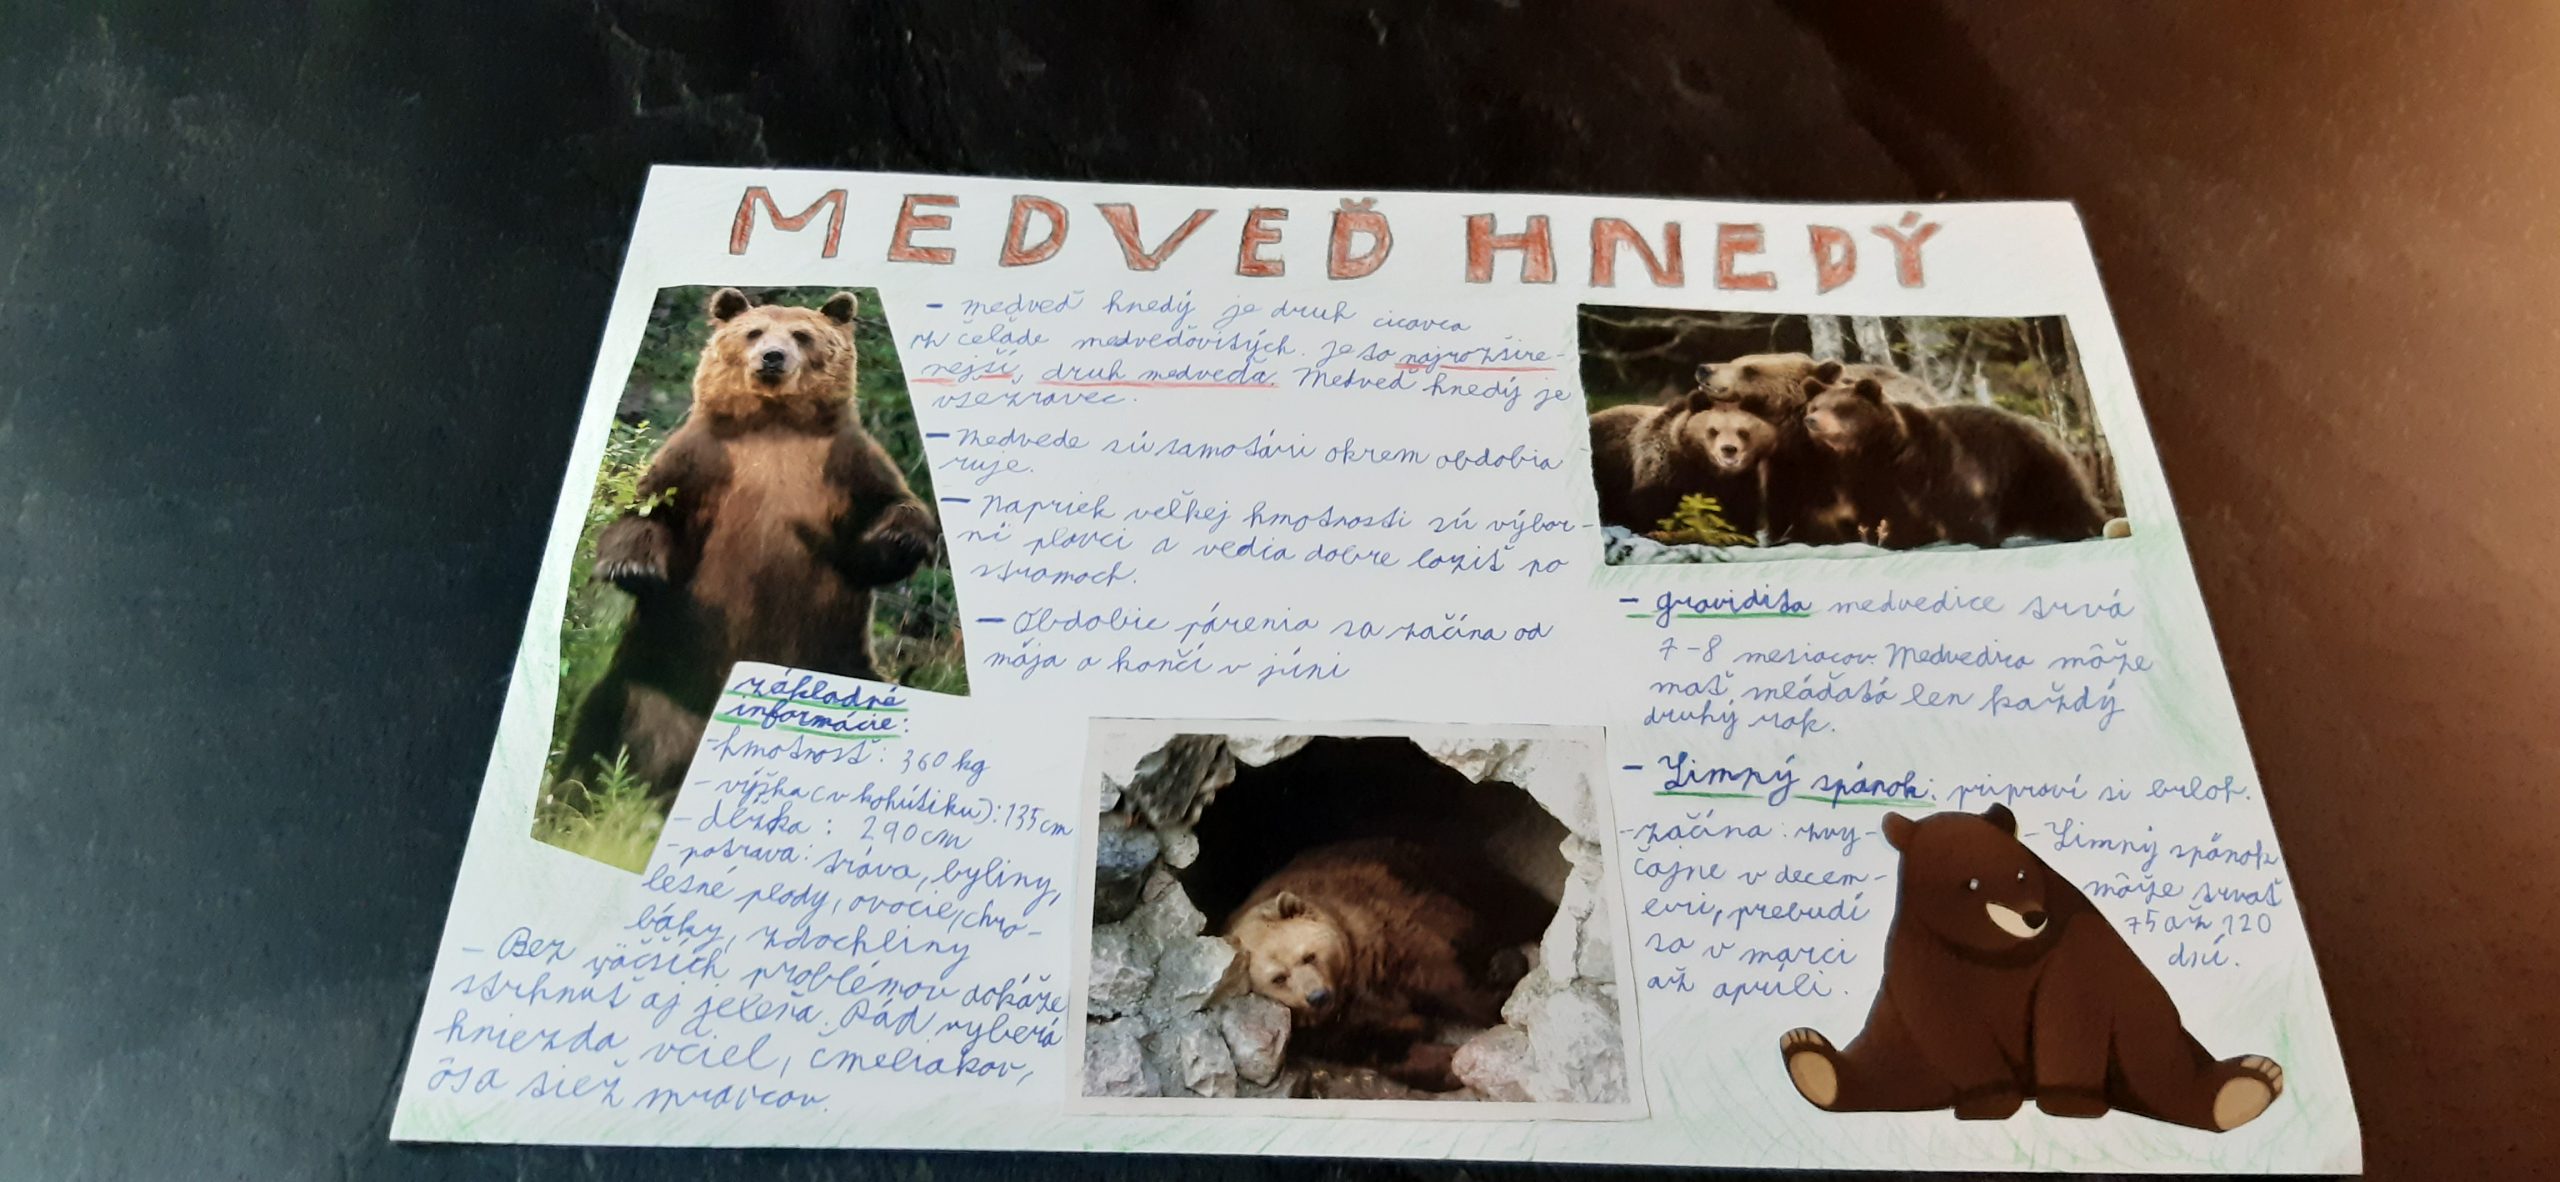 MEDVEĎ HNEDÝ
- medveď hnedý je druh cicavca
z čeľade medveďovitých. Je to najrozšíre-
nejší, druh medveďa. Medveď hnedý je
všežravec.
- Medvede sú samotári okrem obdobia
ruje.
- Napriek veľkej hmotnosti sú výbor-
ní plavci a vedia dobre loziť po
stromoch.
- Obdobie párenia sa začína od
mája a končí v júni
základné
informácie:
- hmotnosť: 360 kg
- výška (v kohútiku): 135 cm
- dĺžka: 290 cm
- potrava: tráva, byliny,
lesné plody, ovocie, chro-
báky, zdochliny
- Bez väčších problémov dokáže
strhnuť aj jeleňa. Rád vyberá
hniezda včiel, čmeliakov,
ôs a tiež mravcov.
- gravidita medvedice trvá
7-8 mesiacov. Medvedica môže
mať mláďatá len každý
druhý rok.
- Zimný spánok: pripraví si brloh.
- začína: zvy-
čajne v decem-
bri, prebudí
sa v marci
až apríli.
- Zimný spánok
môže trvať
75 až 120
dní.